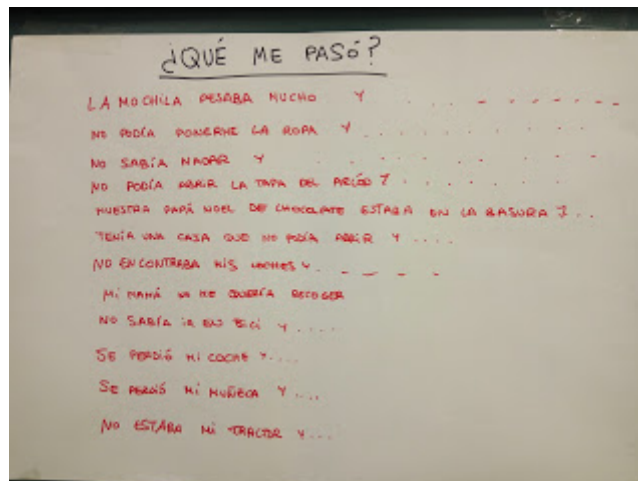 ¿QUÉ ME PASÓ?
LA MOCHILA PESABA MUCHO Y . . . . . . . . .
NO PODÍA PONERME LA ROPA Y . . . . . . . . .
NO SABÍA NADAR Y . . . . . . . . .
NO PODÍA ABRIR LA TAPA DEL Y . . . . . .
NUESTRA PAPÁ NOEL DE CHOCOLATE ESTABA EN LA BASURA Y . .
TENÍA UNA CAJA QUE NO PODÍA ABRIR Y ....
NO ENCONTRABA MIS COCHES Y . _ _ . _
MI MAMÁ NO ME QUERÍA RECOGER
NO SABÍA IR EN BICI Y ....
SE PERDIÓ MI COCHE Y ....
SE PERDIÓ MI MUÑECA Y ....
NO ESTABA MI TRACTOR Y ...